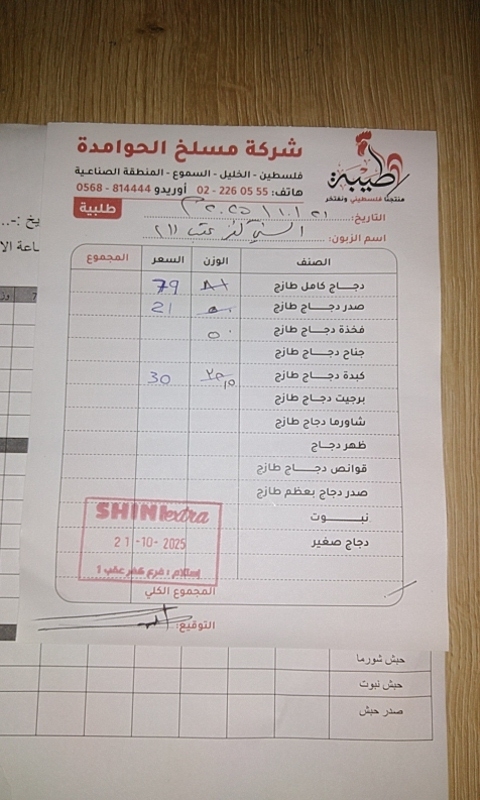 شركة مسلخ الحوامدة
فلسطين - الخليل - السموع - المنطقة الصناعية
هاتف: 55 05 226 - 02 أوريدو 814444 - 0568
طيبة
منتجنا فلسطيني ونفتخر
طلبية
التاريخ: ٢١ / ١٠ / ٢٠٢٥ م
اسم الزبون: كفر عقب (١)
الصنف الوزن السعر المجموع
دجاج كامل طازج 79
صدر دجاج طازج 21
فخذة دجاج طازج ٥٠
جناح دجاج طازج
كبدة دجاج طازج 30
برجيت دجاج طازج
شاورما دجاج طازج
ظهر دجاج
قوانص دجاج طازج
صدر دجاج بعظم طازج
نبوت
دجاج صغير
SHINI extra
21-10-2025
إستلام : فرع كفر عقب 1
المجموع الكلي
التوقيع:
حبش شورما
حبش نبوت
صدر حبش